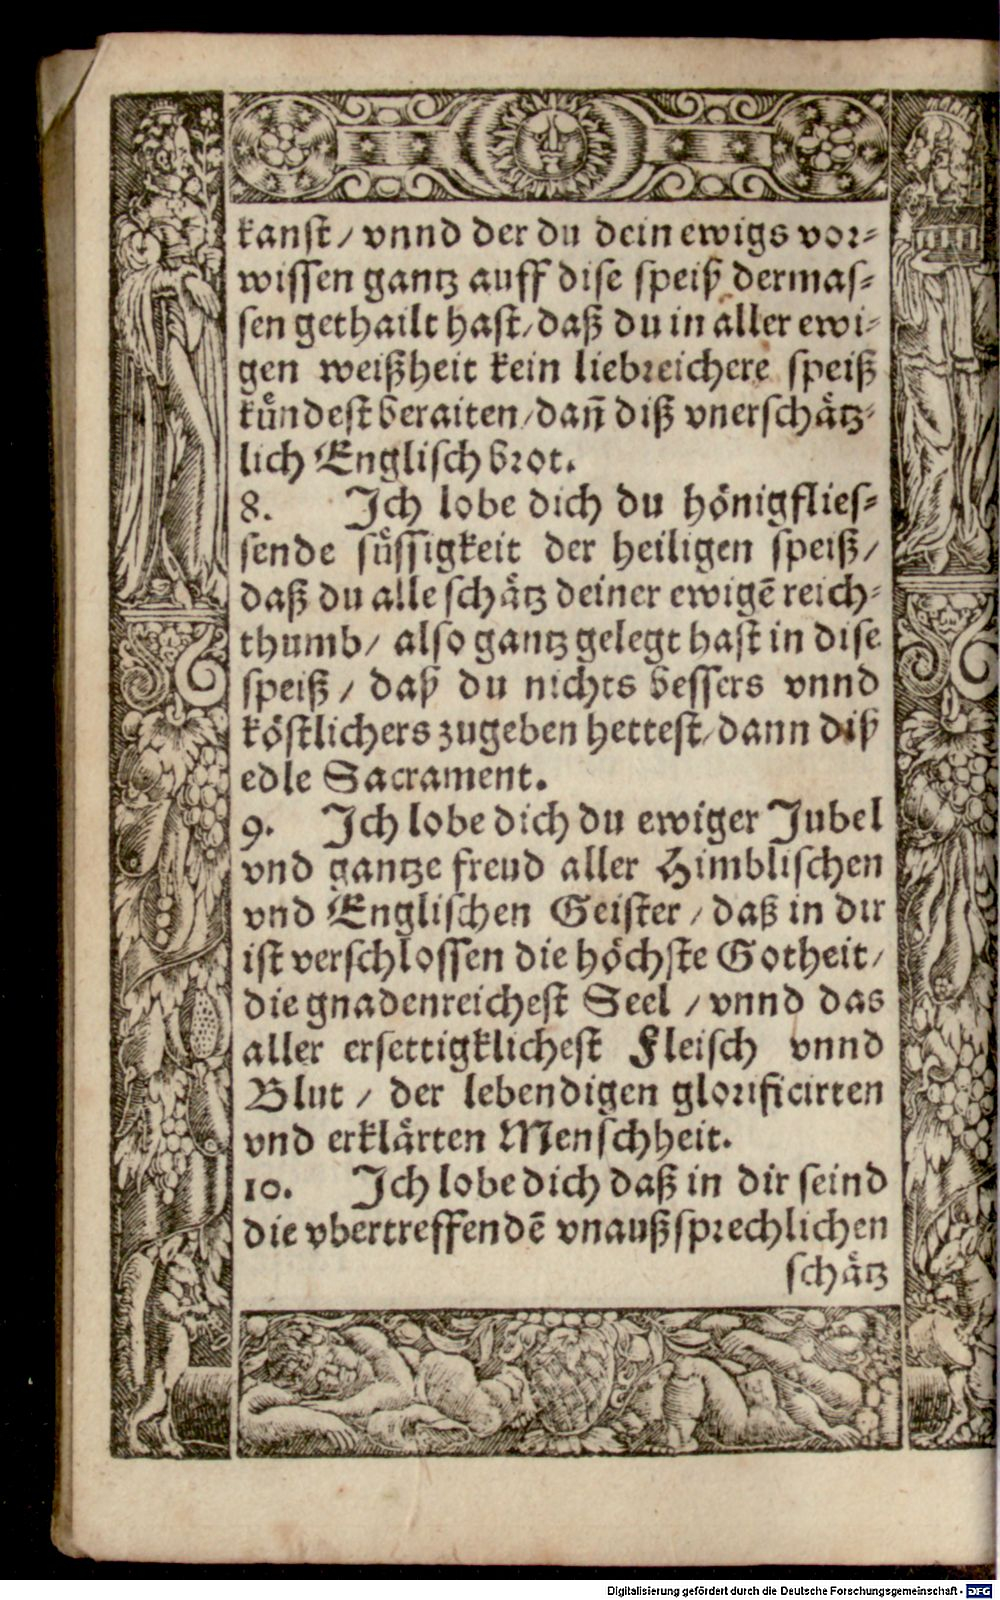 kanst / vnnd der du dein ewigs vor⸗
wissen gantz auff dise speiß dermas⸗
sen gethailt hast / daß du in aller ewi⸗
gen weißheit kein liebreichere speiß
kuͤndest beraiten / dañ diß vnerschaͤtz⸗
lich Englisch brot.
8. Ich lobe dich du hoͤnigflies⸗
sende suͤssigkeit der heiligen speiß /
daß du alle schaͤtz deiner ewigē reich⸗
thumb / also gantz gelegt hast in dise
speiß / daß du nichts bessers vnnd
koͤstlichers zugeben hettest / dann diß
edle Sacrament.
9. Ich lobe dich du ewiger Jubel
vnd gantze freud aller Himblischen
vnd Englischen Geister / daß in dir
ist verschlossen die hoͤchste Gotheit /
die gnadenreichest Seel / vnnd das
aller ersettigklichest Fleisch vnnd
Blut / der lebendigen glorificirten
vnd erklaͤrten Menschheit.
10. Ich lobe dich daß in dir seind
die vbertreffendē vnaußsprechlichen
schaͤtz
Digitalisierung gefördert durch die Deutsche Forschungsgemeinschaft - DFG